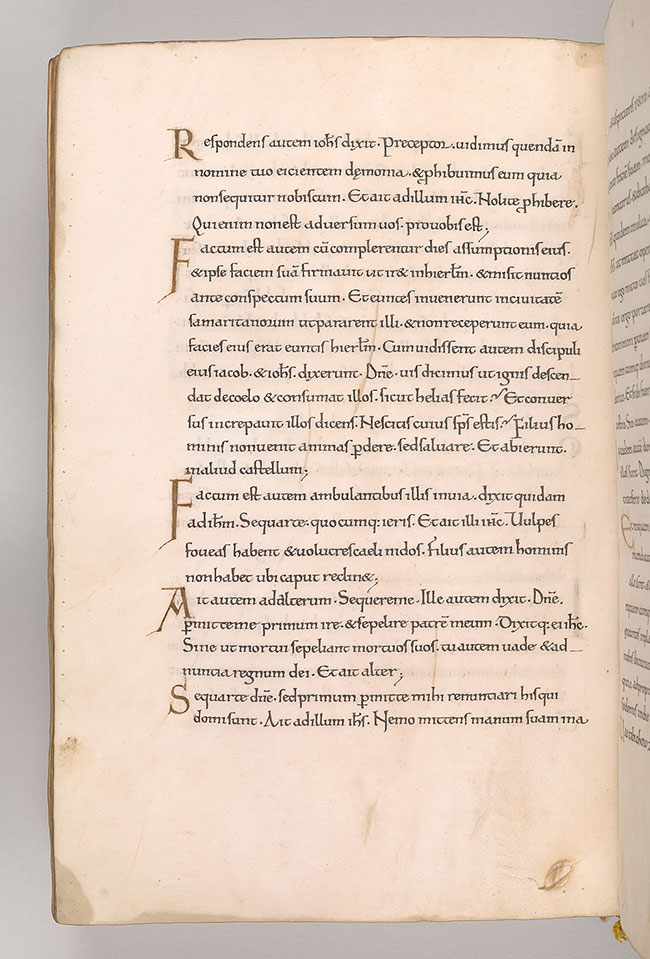 Respondens autem ioħs dixit · Preceptor . uidimus quendā in
nomine tuo eicientem dęmonia . & ꝓhibuimus eum quia
nonsequitur nobiscum . Etait adillum iħc . Nolite ꝓhibere .
Qui enim nonest aduersum uos . pro uobis est ;
Factum est autem cū complerentur dies assumptionis eius .
& ipse faciem suā firmauit ut ir& inhierłm . & misit nuntios
ante conspectum suum . Et euntes inuenerunt inciuitatē
samaritanorum ut pararent illi . & nonreceperunt eum . quia
facies eius erat euntis hierłm . Cum uidissent autem discipuli
eius iacob . & ioħs . dixerunt . Dn̄e . uis dicimus ut ignis descen_
dat decoelo & consumat illos . sicut helias fecit ? Et conuer
sus increpauit illos dicens . Nescitis cuius sp̄s estis . Filius ho_
minis nonuenit animas ꝑdere . sed saluare . Et abierunt .
inaliud castellum ;
Factum est autem ambulantibus illis inuia . dixit quidam
ad iħm . Sequar te . quocumq; ieris . Et ait illi iħc . Uulpes
foueas habent & uolucres caeli nidos . Filius autem hominis
non habet ubi caput reclin& ;
Ait autem ad alterum . Sequere me . Ille autem dixit . Dn̄e .
ꝑmitte me primum ire . & sepelire patrē meum . Dixitq; ei iħc .
Sine ut mortui sepeliant mortuos suos . tu autem uade & ad_
nuntia regnum dei . Et ait alter ;
Sequar te dn̄e . sed primum ꝑmitte mihi renuntiari his qui
domi sunt . Ait ad illum iħs . Nemo mittens manum suam ina